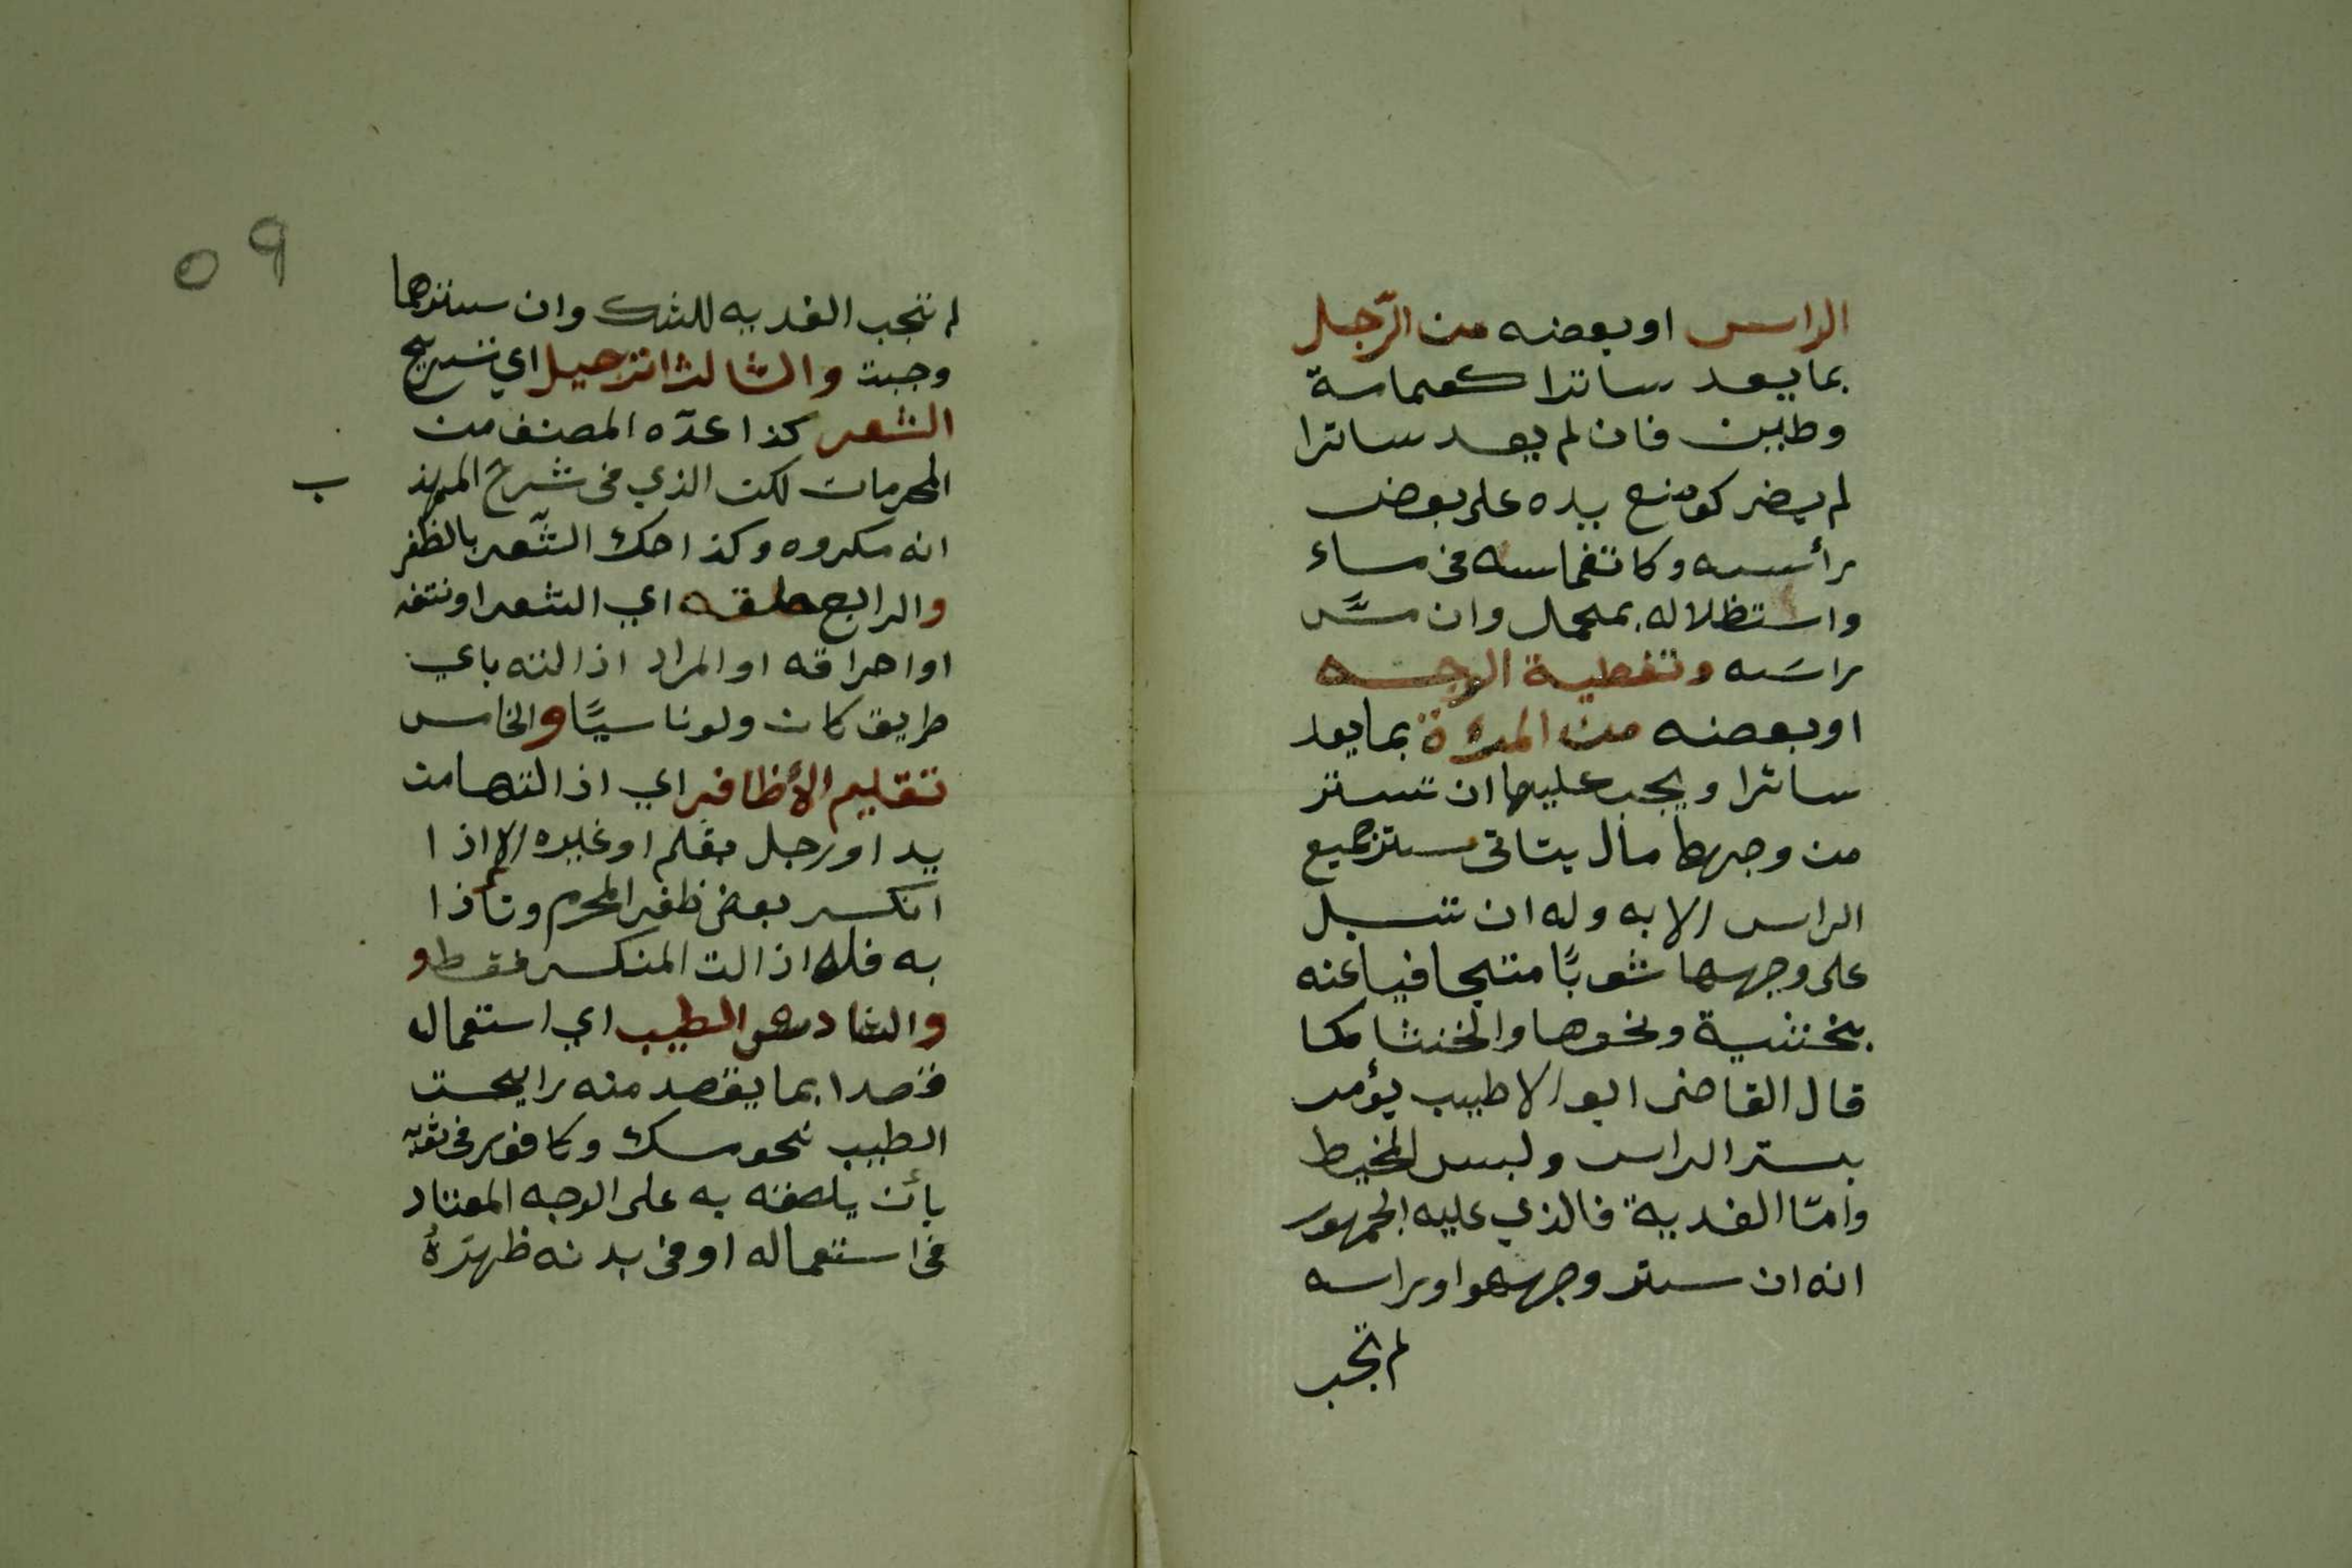 الراس او بعضه من الرّجل
بما يعد ساترا كعمامة
وطين فان لم يعد ساترا
لم يضر كوضع يده على بعض
رأسه وكانغماسه في ماء
واستظلاله بمحمل وان مسَّ
راسَه وتغطية الوجه
او بعضه من المرءة بما يعد
ساترا ويجب عليها ان تستتر
من وجهها مال يتاتى ستر جميع
الراس الا به وله ان تسبل
على وجهها ثوبًا متجافيا عنه
بخشبة ونحوها والخنثا كما
قال القاضى ابو الاطيب يؤمر
بستر الراس ولبس المخيط
وامّا الفدية فالذي عليه الجمهور
انه ان ستر وجهه او راسه
لم تجب
٥٩
لم تجب الفديه للشك وان سترهما
وجبت والثالث الترجيل اي تسريح
الشعر كذا عدّه المصنف من
المحرمات لكن الذي في شرح المهذ
ب
انه مكروه وكذا حك الشّعر بالظفر
والرابع حلقه اي الشعر او نتفه
او احراقه او المراد اذالته باي
طريق كان ولو ناسيًا والخامس
تقليم الأظافر اي اذالتها من
يد او رجل بقلم او غيره الا اذا
انكسر بعض ظفر المحرم وتأذا
به فله اذالت المنكسر فقط و
والسّادس الطيب اي استعمال
قصدا بما يقصد منه رايحت
الطيب نحو مسك وكافور في ثوبه
بأن يلصقه به على الوجه المعتاد
في استعماله او في بدنه ظهرَهُ